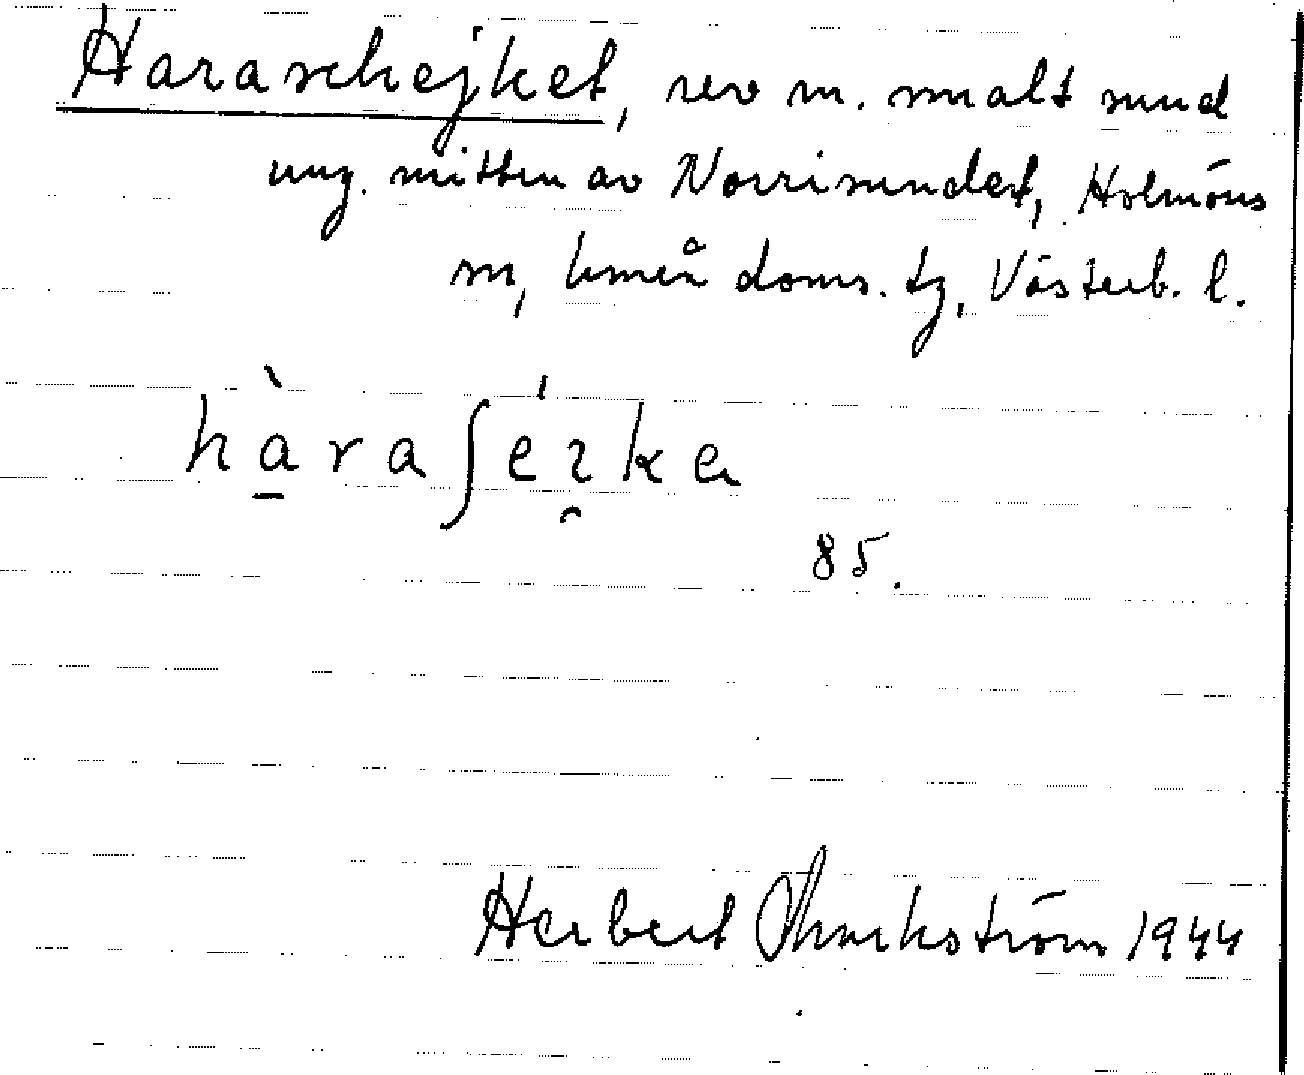 Haraschejket, rev m. smalt sund
ung. mitten av Norrisundet, Holmöns
sn, Umeå doms. tg, Västerb. l.
hàraʃéɪ̯ka
85.
Herbert Markström 1944